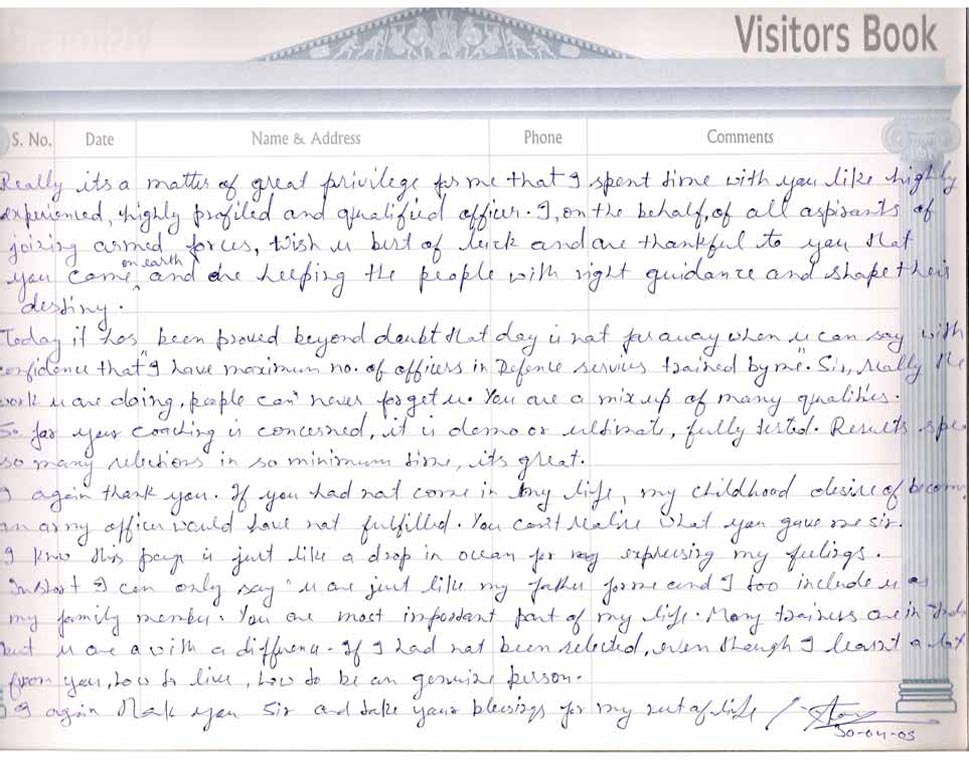 Visitors Book
S. No. Date Name & Address Phone Comments
Really its a matter of great privilege for me that I spent time with you like highly
experienced, highly profiled and qualified officer. I, on the behalf, of all aspirants of
joizing armed forces, Wish u best of luck and are thankful to you that
on earth
you came and are keeping the people with right guidance and shape their
destiny.
Today it has been proved beyond doubt that day is not far away when u can say with
confidence that "I have maximum no. of officers in Defence services trained by me". Sir, really the
work u are doing, people can never forget u. You are a mix up of many qualities.
So far your coaching is concerned, it is demo or ultimate, fully tested. Results
so many selections in so minimum time, its great.
I again thank you. If you had not come in my life, my childhood desire of
an army officer would have not fulfilled. You can't realise what you gave me sir.
I know this page is just like a drop in ocean for expressing my feelings.
Inshort I can only say "u are just like my father for me and I too include u as
my family member. You are most important part of my life. Many trainers are in
but u are a with a difference. If I had not been selected, even though I learnt a lot
from you, how to live, how to be an genuine person.
I again thank you Sir and take your blessings for my rest of life
30-04-05